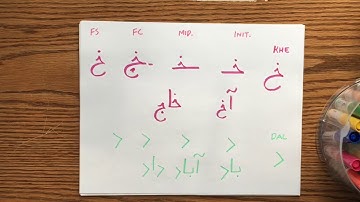 FS FC MID. INIT. KHE
خ ـخـ خـ خ
آخ
DAL
د د د د د
باد آباد داد